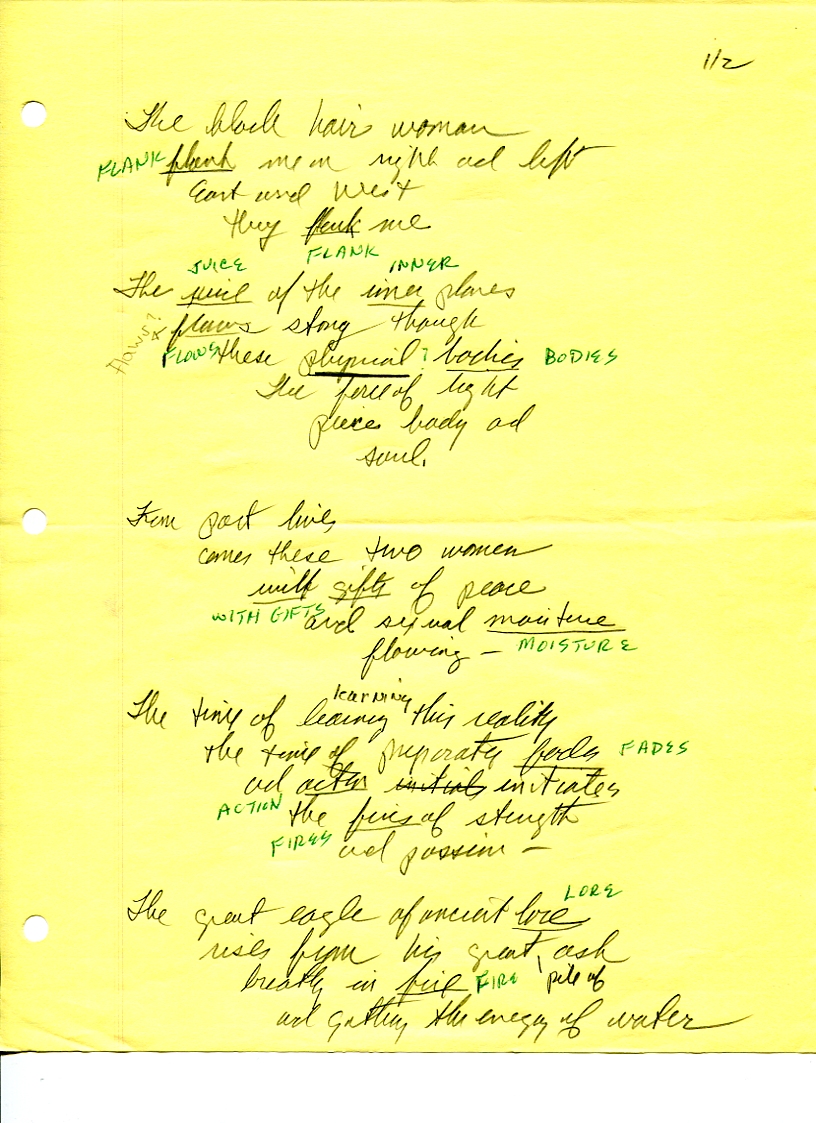 1/2
The black hair woman
FLANK flank me on right ad left
East and West
they flank me
JUICE FLANK INNER
The juice of the inner planes
flows? x flows stong though
FLOWS these physical ? bodies BODIES
The force of light
pierce body ad
soul.
From past lives
comes these two women
with gifts of peace
WITH GIFTS and sexual moisture
flowing – MOISTURE
learning
The time of learning this reality
the time of preparatory fades FADES
ad action initials initiates
ACTION the fires of stength
FIRES and passion –
LORE
The great eagle of ancient lore
rises from his great, ash
breathy in fire FIRE pile of
ad gathey the enegy of water